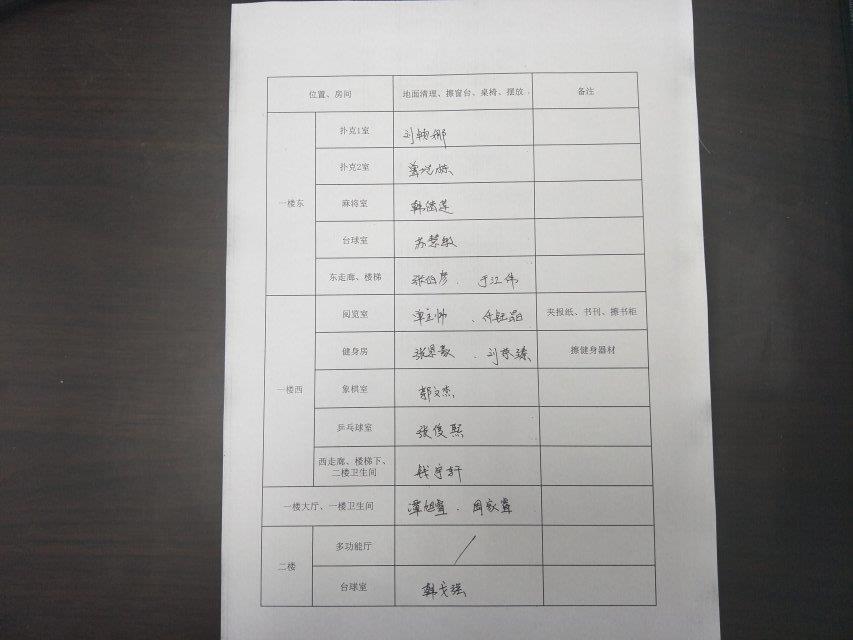 位置、房间 地面清理、擦窗台、桌椅、摆放. 备注
一楼东
扑克1室
扑克2室
麻将室 韩德莲
台球室 苏慧敏
东走廊、楼梯 张伯彦、于江伟
一楼西
阅览室 夹报纸、书刊、擦书柜
健身房 擦健身器材
象棋室 郭文杰
乒乓球室 张俊熙
西走廊、楼梯下、
二楼卫生间 钱宇轩
一楼大厅、一楼卫生间 周家
二楼
多功能厅 /
台球室 韩戈强